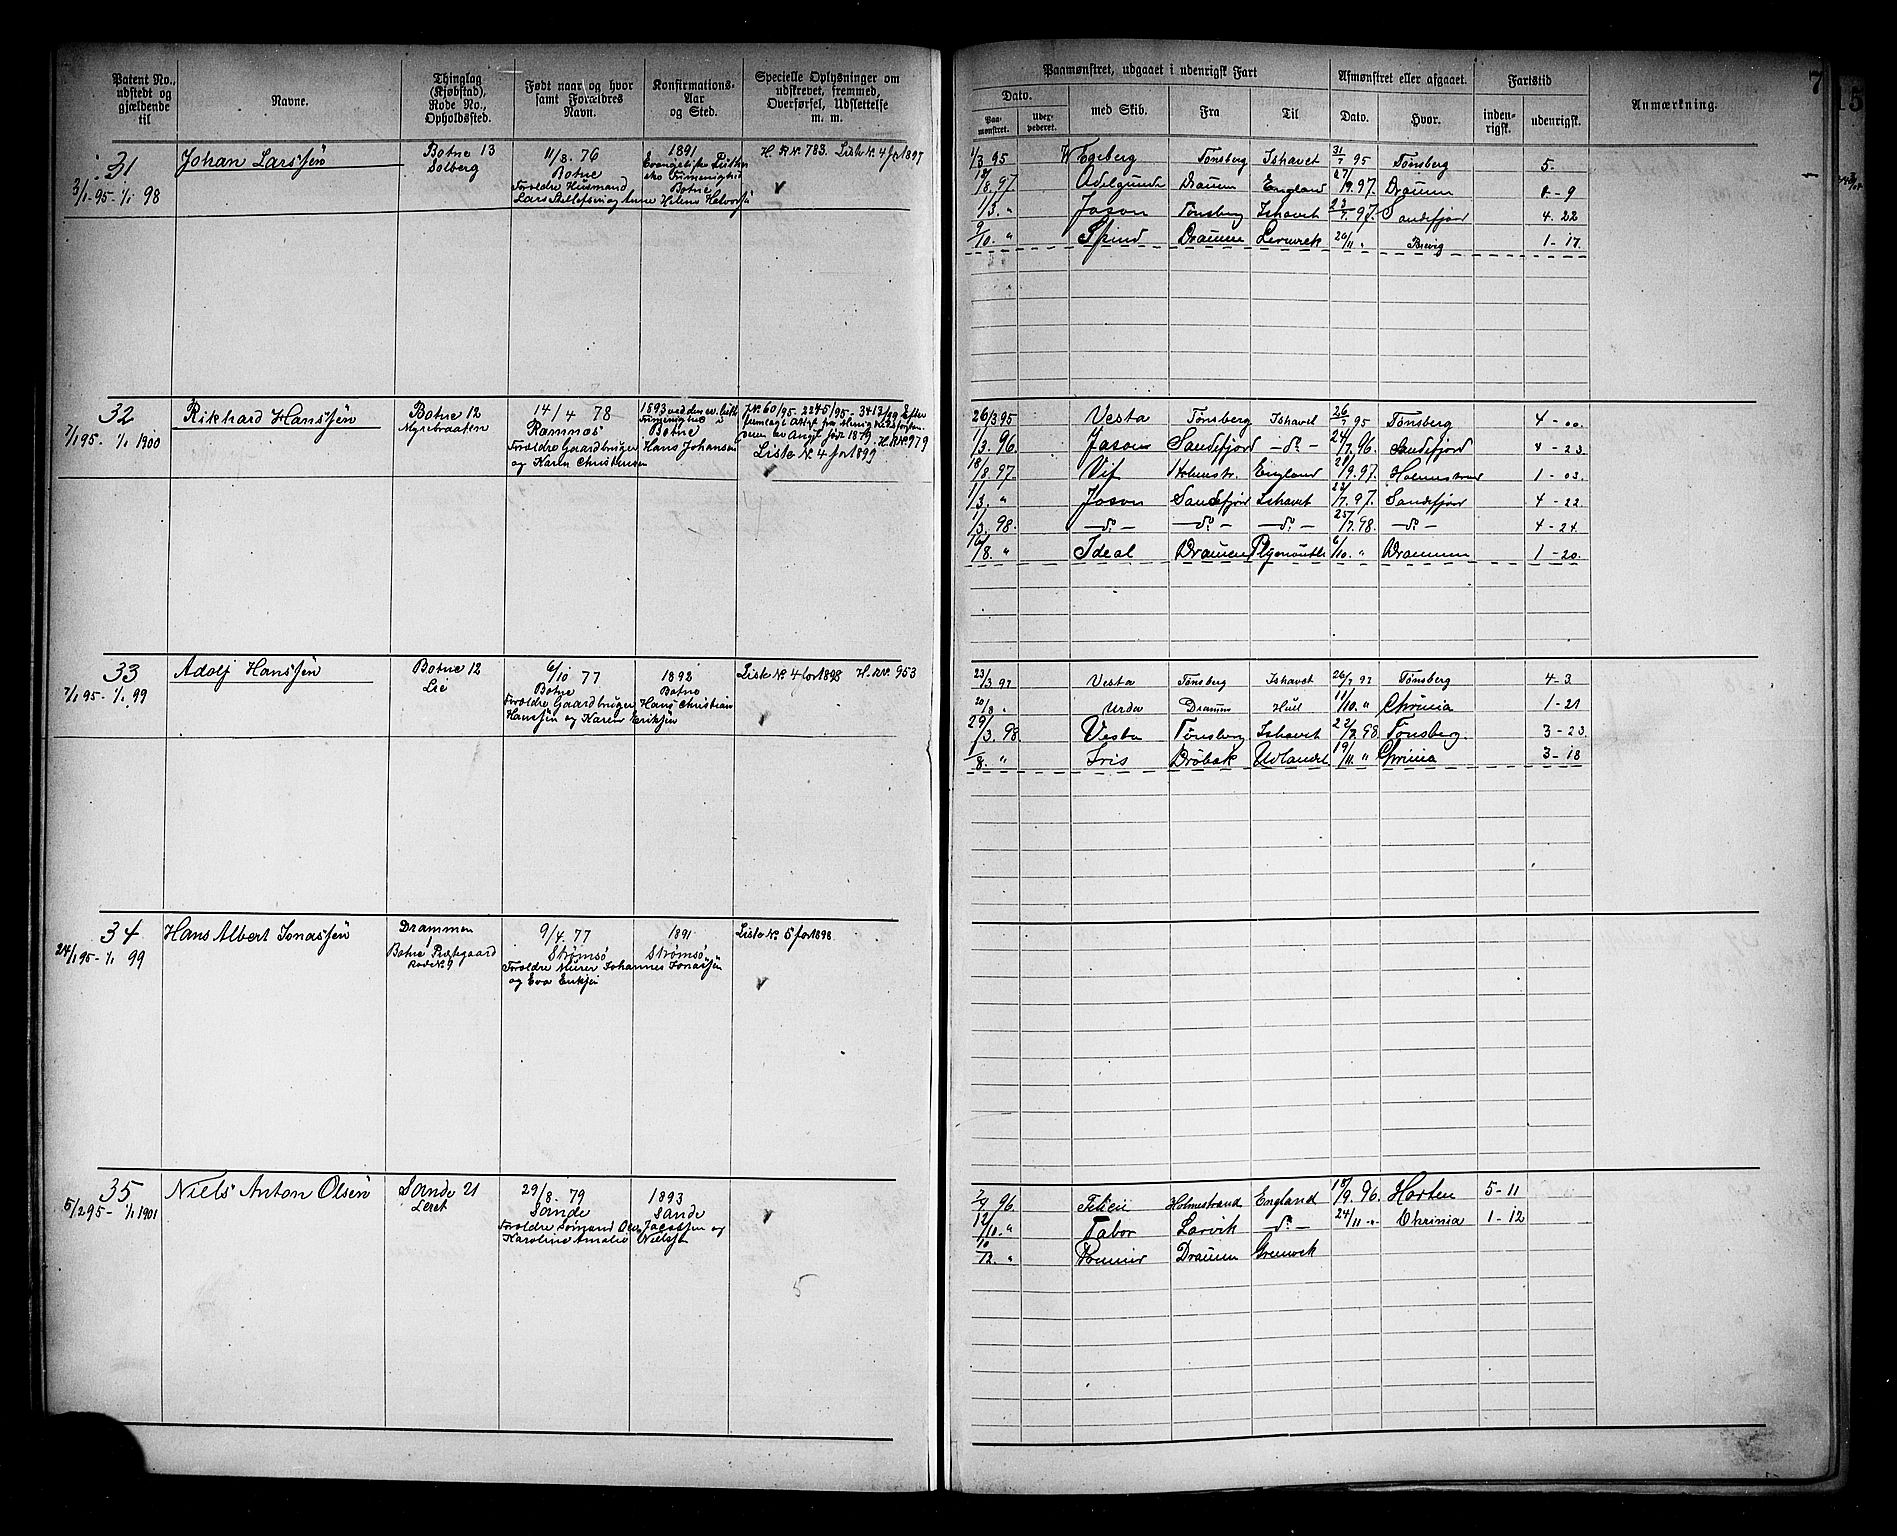 Patent No., udstedt og gjældende til
Navne.
Thinglag (Kjøbstad), Rode No., Opholdssted.
Født naar og hvor samt Forældres Navn.
Konfirmations-Aar og Sted.
Specielle Oplysninger om udskrevet, fremmed, Overførsel, Udslettelse m. m.
Paamønstret, udgaaet i udenrigsk Fart
Afmønstret eller afgaaet.
Fartstid
Anmærkning.
7
15
Dato.
Paamønstret.
med Skib.
Fra
Til
Dato.
Hvor.
indenrigsk.
udenrigsk.
31
3/1 95 - 1/1 98
Johan Larssen
Botne 13
Solberg
11/8. 76
Botne
Forældre Husmand
Lars
1891
Botne
H. R. Nr. 783. Liste Nr. 4 for 1897
1/3 95 Egeberg Tønsberg Ishavet 31/7 95 Tønsberg 5 -
18/8. 97. Adelgunde Dramen England 27/9. 97. Dramen 1 - 9
1/3. " Jason Tønsberg Ishavet 23/7. 97. Sandefjord 4 - 22
9/10. " Spind Dramen Lerwick 26/11 " Brevig 1 - 17.
32
7/1 95 - 1/1 1900
Rikhard Hanssen
Botne 12
Myrebraaten
14/4 78
Ramnæs
Forældre Gaardbruger Hans Johansen
og Karen Christensen
1893 ved den ev. luth
Frimenighed i
Botne
J. Nr. 60/95 - 2245/95 - 3413/99
H. R. Nr. 979
Liste Nr. 4 for 1899
26/3 95 Vesta Tønsberg Ishavet 26/7 95 Tønsberg 4 - 00.
1/3. 96. Jason Sandefjord - do - 24/7. 96. Sandefjord 4 - 23
18/8. 97. Vif Holmstr. England 21/9. 97. Holmestrand 1 - 03.
1/3. " Jason Sandefjord Ishavet 22/7. 97. Sandefjor 4 - 22.
1/3. 98. - do - - do - - do - 25/7. 98. - do - 4 - 24.
16/8. " Ideal Dramen Plymouth 6/10. " Drammen 1 - 20.
33
7/1 95 - 1/1 99
Adolf Hanssen
Botne 12
Lie
6/10 77
Botne
Forældre Gaardbruger Hans Christian
Hanssen og Karen Eriksen
1892
Botne
Liste Nr. 4 for 1898 H. R. Nr. 953
23/3 97 Vesta Tønsberg Ishavet 26/7 97 Tønsberg 4 - 3
20/8 " Urda Dramen Hull 11/10. " Chrinia 1 - 21
29/3. 98. Vesta Tønsberg Ishavet 22/7. 98. Tønsberg. 3 - 23.
1/8. " Iris Drøbak Udlandet 19/11. " Chrinia 3 - 18
34
24/1 95 - 1/1 99
Hans Albert Jonassen
Drammen
1
Botne Prestegaard
Rode Nr. 9
9/4. 77
Strømsø
Forældre Murer Johannes Jonassen
og Eva
1891
Strømsø
Liste Nr. 5 for 1898
35
5/2 95 - 1/1 1901
Niels Anton Olsen
Sande 21
Leret
29/8. 79
Sande
Forældre Sømand Ole Jacobsen og
Karoline Amalie Nielsdt
1893
Sande
5
2/4 96 Felicie Holmestrand England 18/9. 96. Horten 5 - 11
12/10. " Tabor Larvik - do - 24/11 " Chrinia 1 - 12
10/12. " Premier Dramen Grenock